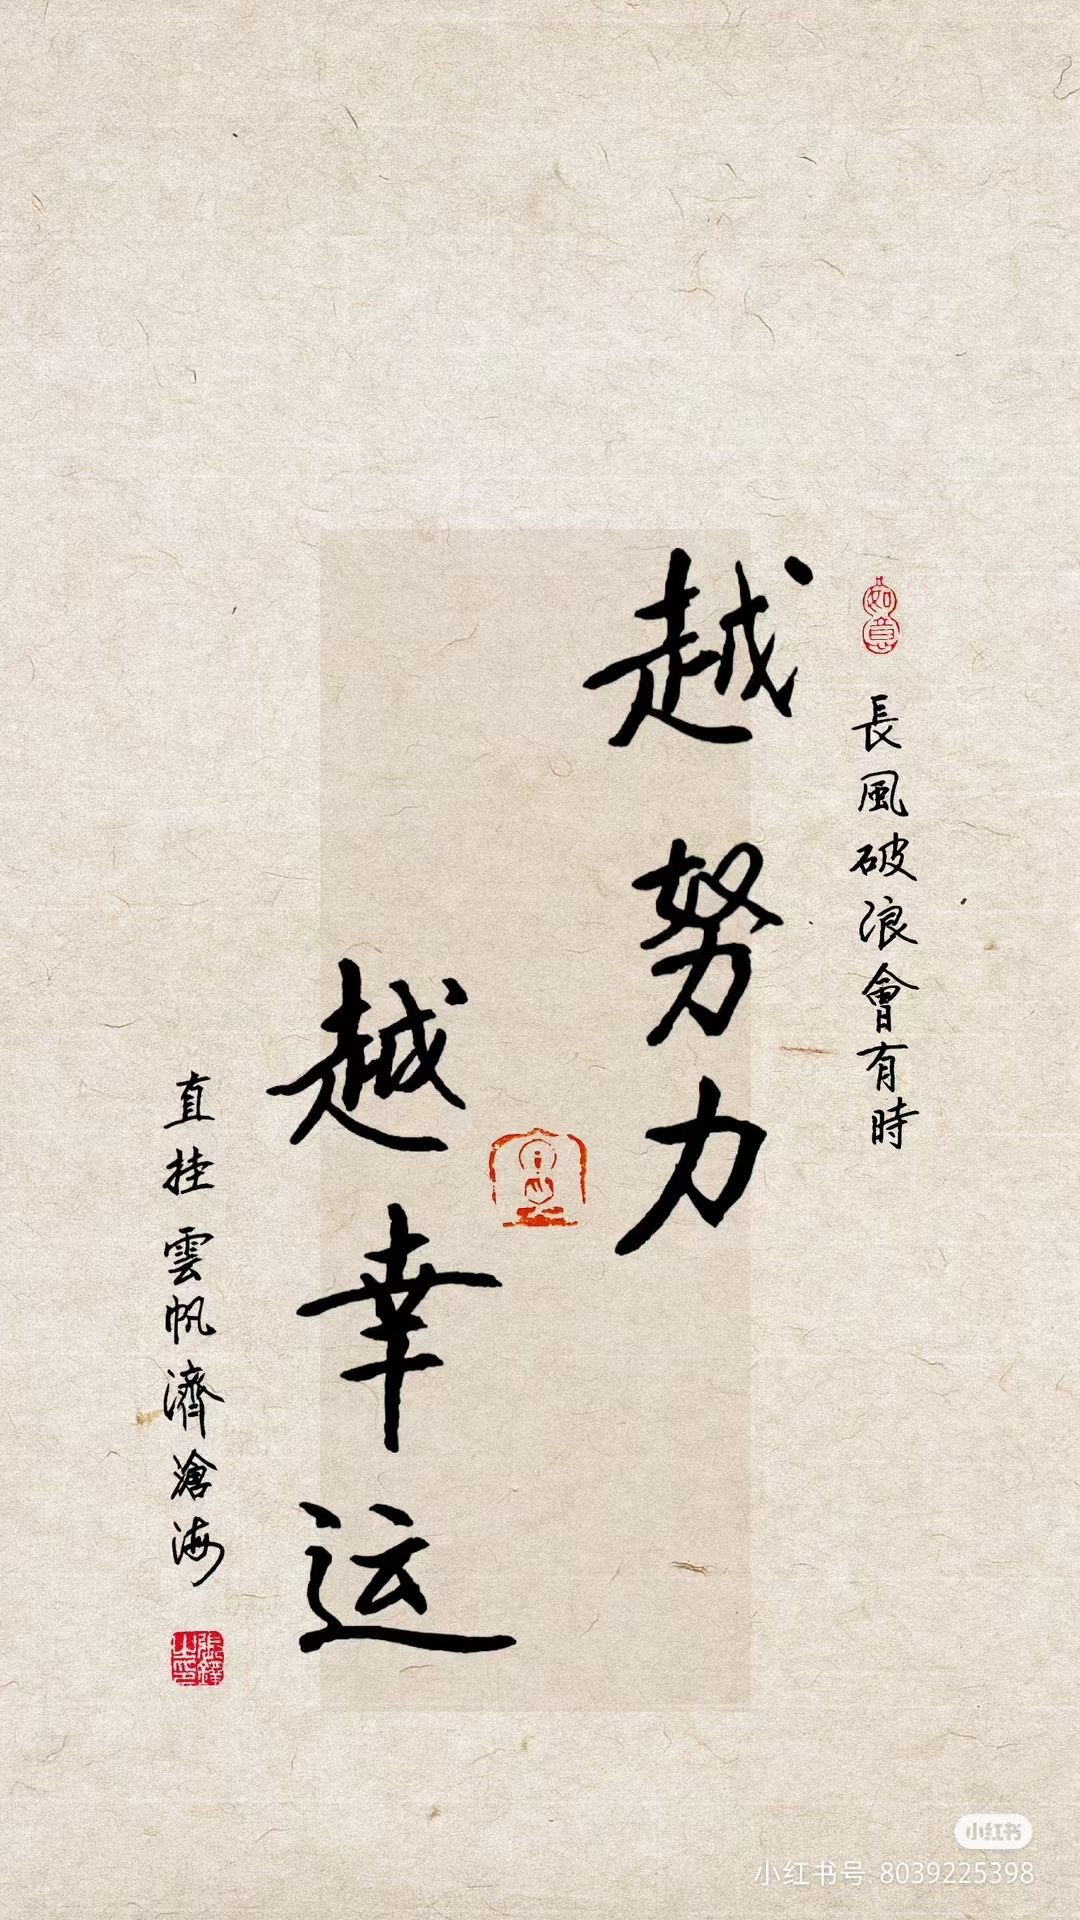 如意
長風破浪會有時
越努力
越幸运
直挂雲帆濟滄海
小红书
小红书号:8039225398